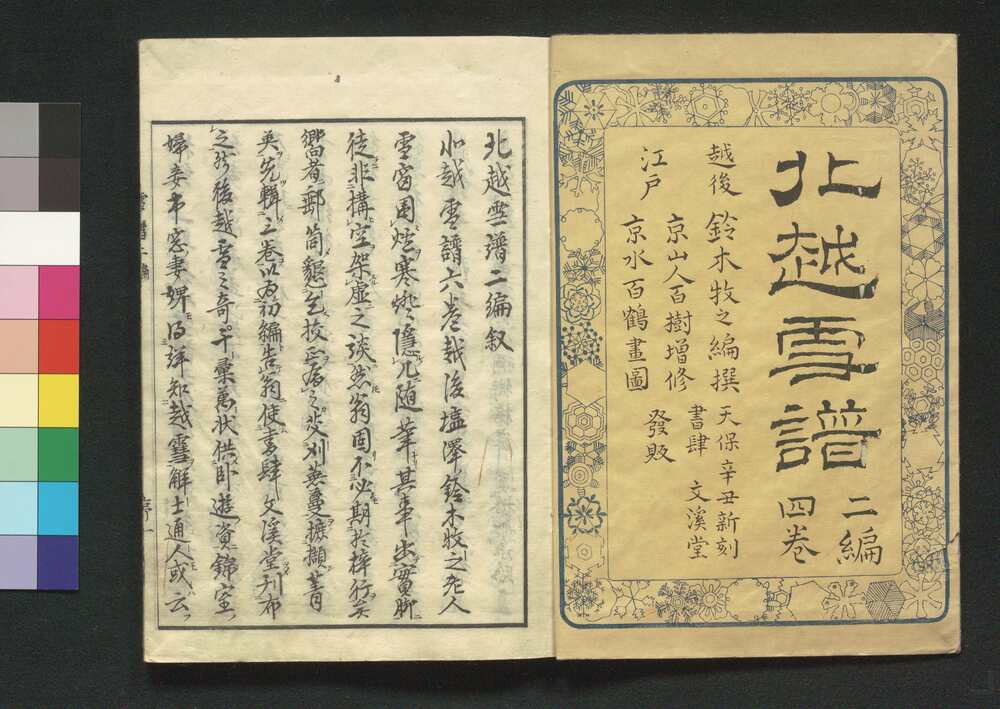 北越雪譜
二編
四巻
越後 鈴木牧之編撰
京山人百樹增修
江戸 京水百鶴畫圖
天保辛丑新刻
書肆 文溪堂
發販
北越雪譜二編叙
北越雪譜六巻越後塩澤鈴木牧之老人
雪窗囲炉寒燈隠几随筆其事出實聊
徒非構空架虚之談然翁固不必期於梓行矣
嚮者郵筒懇乞校正痛之芟刈蕪蔓摭擷菁
英先輯三巻以為初編告翁使書肆文溪堂刊布
之於後越雪之奇千彙万状供臥遊資錦室
婦妾朱窓妻婢得詳知越雪解士通人或云
雪譜二編
序一